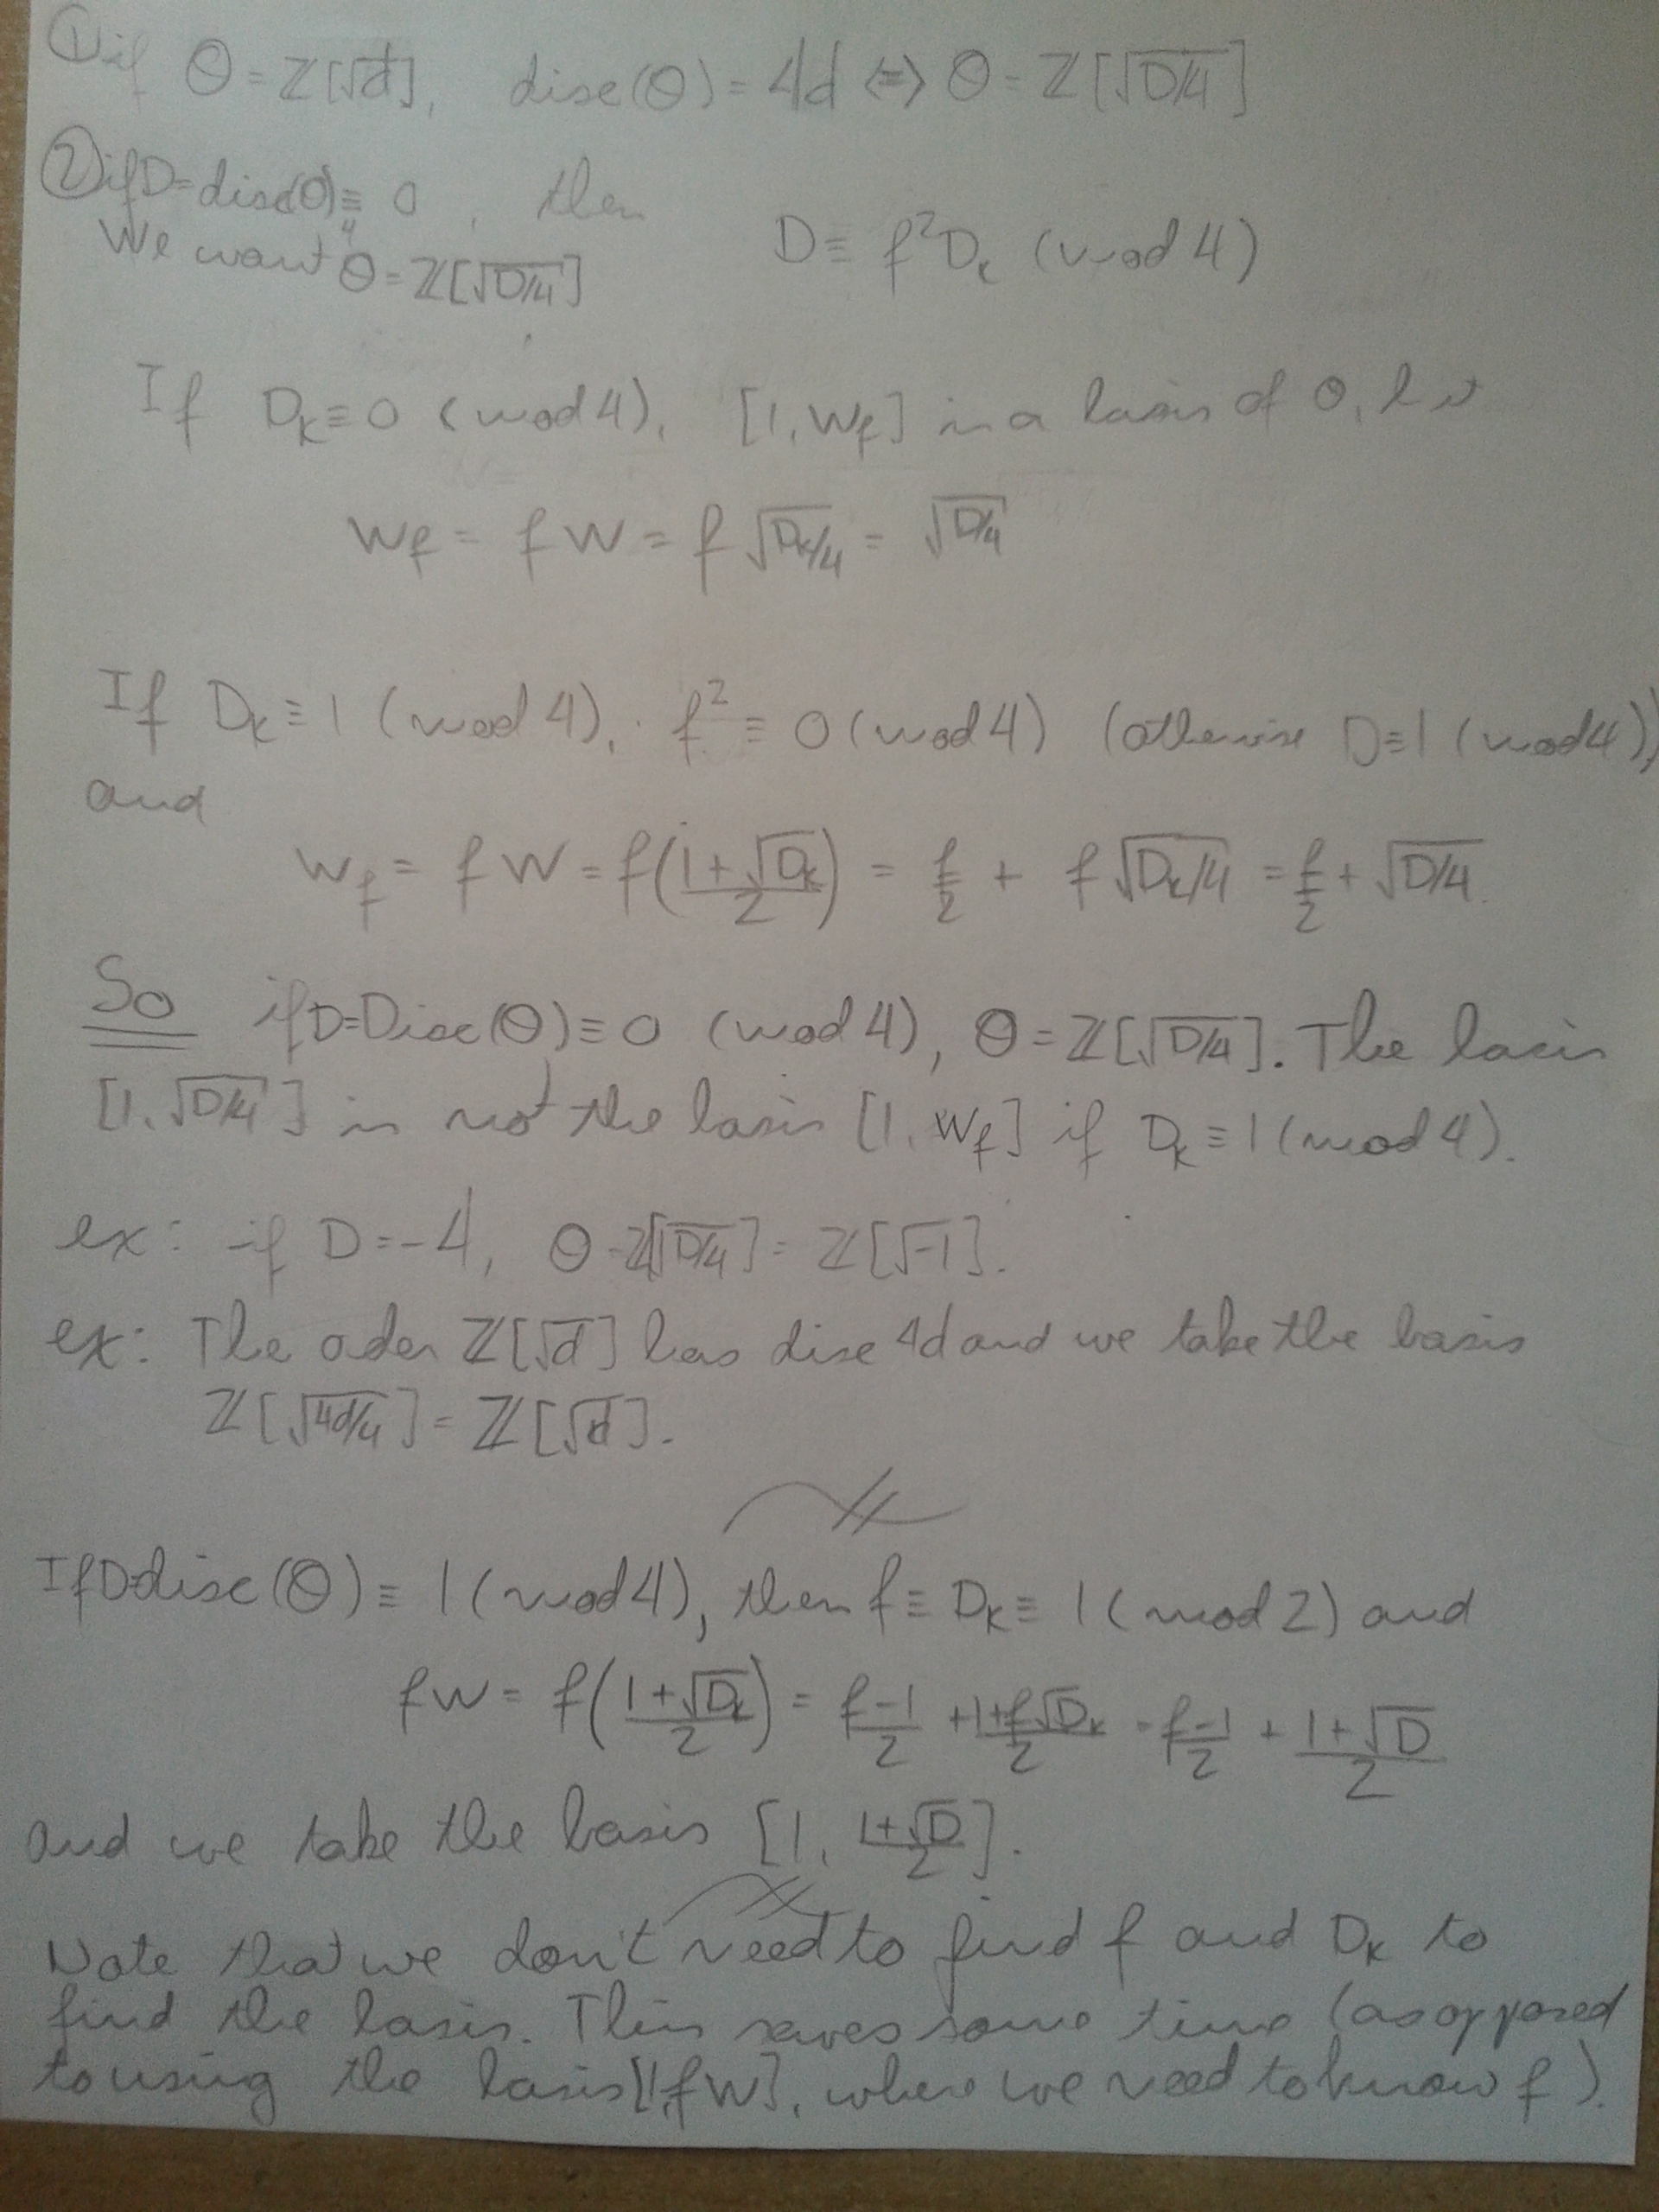 ① if O = Z[√d], disc(O) = 4d ⇔ O = Z[√D/4]
② if D = disc(O) ≡₄ 0, then
We want O = Z[√D/4]
D ≡ f²D_K (mod 4)
If D_K ≡ 0 (mod 4), [1, W_f] is a basis of O,
W_f = f W = f √D_K/4 = √D/4
If D_K ≡ 1 (mod 4), f² ≡ 0 (mod 4) (otherwise D ≡ 1 (mod 4)),
and
W_f = f W = f((1+√D_K)/2) = f/2 + f √D_K/4 = f/2 + √D/4.
So if D = Disc(O) ≡ 0 (mod 4), O = Z[√D/4]. The basis
[1, √D/4] is not the basis [1, W_f] if D_K ≡ 1 (mod 4).
ex: if D = -4, O = Z[√D/4] = Z[√-1].
ex: The oder Z[√d] has disc 4d and we take the basis
Z[√4d/4] = Z[√d].
If D = disc(O) ≡ 1 (mod 4), then f ≡ D_K ≡ 1 (mod 2) and
fW = f((1+√D_K)/2) = (f-1)/2 + (1+f√D_K)/2 = (f-1)/2 + (1+√D)/2
and we take the basis [1, (1+√D)/2].
Note that we don't need to find f and D_K to
find the basis. This saves some time (as opposed
to using the basis [1, fW], where we need to know f).